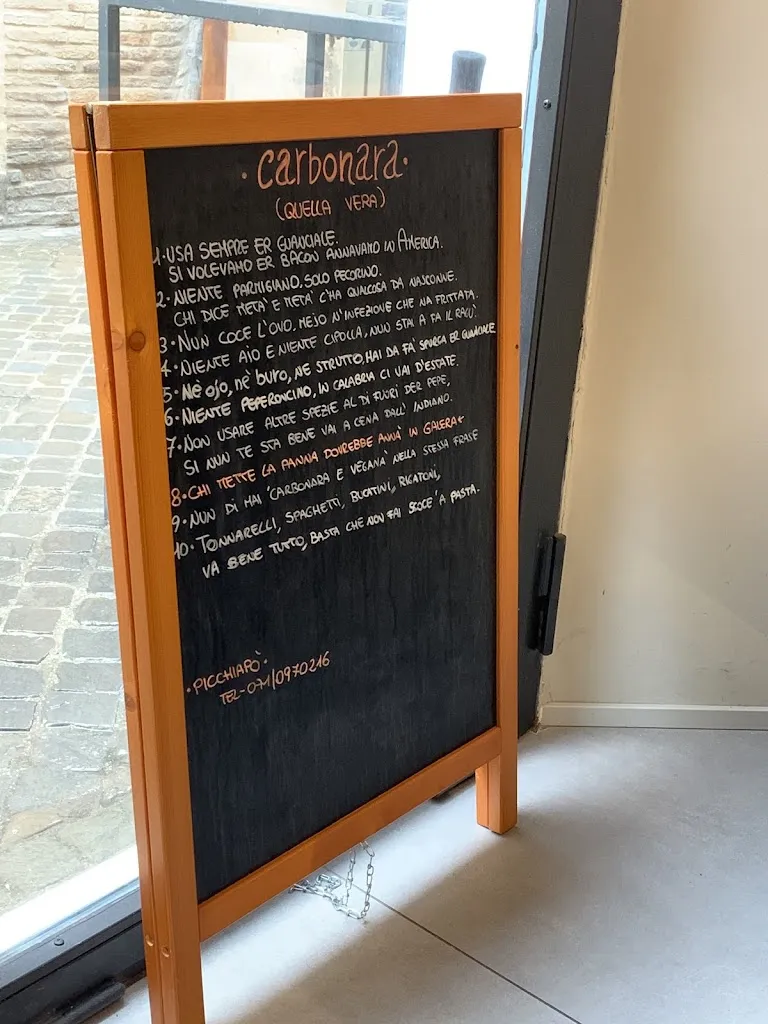 · carbonara ·
(QUELLA VERA)
1. USA SEMPRE ER GUANCIALE.
SI VOLEVAMO ER BACON ANNAVAMO IN AMERICA.
2. NIENTE PARMIGIANO, SOLO PECORINO.
CHI DICE METÀ E METÀ C'HA QUALCOSA DA NASCONNE.
3. NUN COCE L'OVO, MEJO N'INFEZIONE CHE NA FRITTATA.
4. NIENTE AIO E NIENTE CIPOLLA, NUN STAI A FA IL RAGÙ.
5. Nè ojo, nè buro, NE STRUTTO, HAI DA FÀ SPURGÀ ER GUANCIALE
6. NIENTE PEPERONCINO, IN CALABRIA CI VAI D'ESTATE.
7. NON USARE ALTRE SPEZIE AL DI FUORI DER PEPE,
SI NUN TE STA BENE VAI A CENA DALL' INDIANO.
8. CHI METTE LA PANNA DOVREBBE ANNÀ IN GALERA
9. NUN DI MAI 'CARBONARA E VEGANA' NELLA STESSA FRASE
10. TONNARELLI, SPAGHETTI, BUCATINI, RIGATONI,
VA BENE TUTTO, BASTA CHE NON FAI SCOCE' A PASTA.
· PICCHIAPÒ ·
TEL- 071/0970216